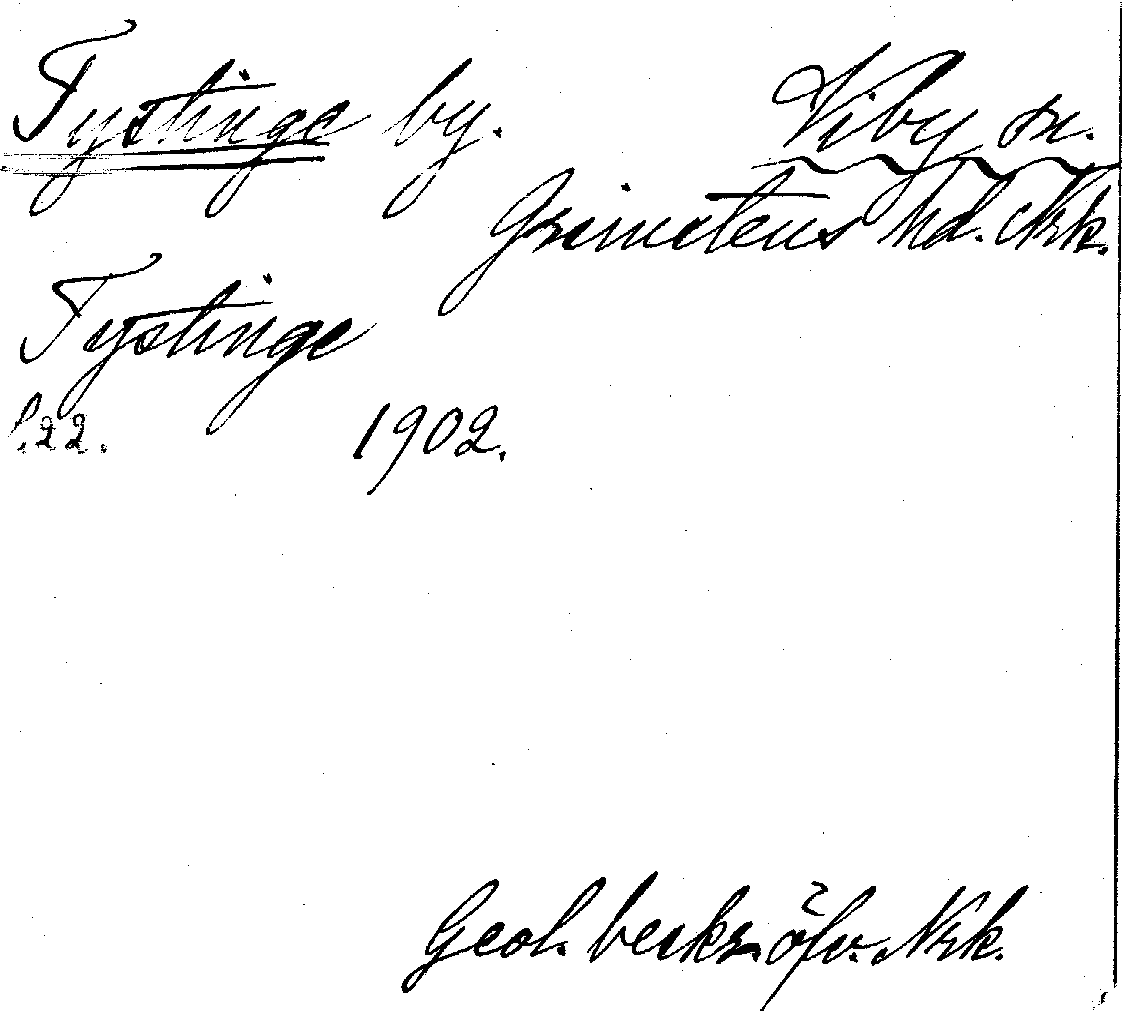 Tystinge by. Viby sn.
Grimstens hd. Nrk.
Tystinge
s. 22. 1902.
Geol. beskr. öfv. Nrk.